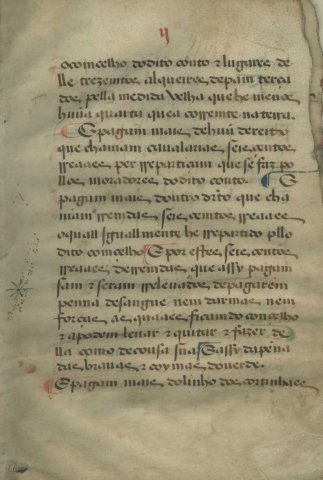 ij
oconcelho do dito couto ⁊ lugares de
lle trezentos alqueires de pam terça
dos, pella medida velha que he menos
huũa quarta que a corrente na terra.
E pagam mais de huũ dereito
que chamam cavalarias seis centos
rreaaes per rrepartiçam que se faz po
llos moradores do dito couto. E
pagam mais doutro dito que cha
mam rrendas, seis centos rreaaes
o quall Igualmente he rrepartido pllo
dito concelho E por estes seis centos
rreaaes de rrendas, que assy pagam
sam ⁊ seram rrelevados de pagarem
penna de sangue nem darmas nem
forças as quaaes, ficam do concelho
⁊ a podem levar ⁊ quitar ⁊ fazer de
lla como de cousa sua E assy da pena
das bravas, ⁊ coymas do verde.
E pagam mais do linho dos cortinhaes